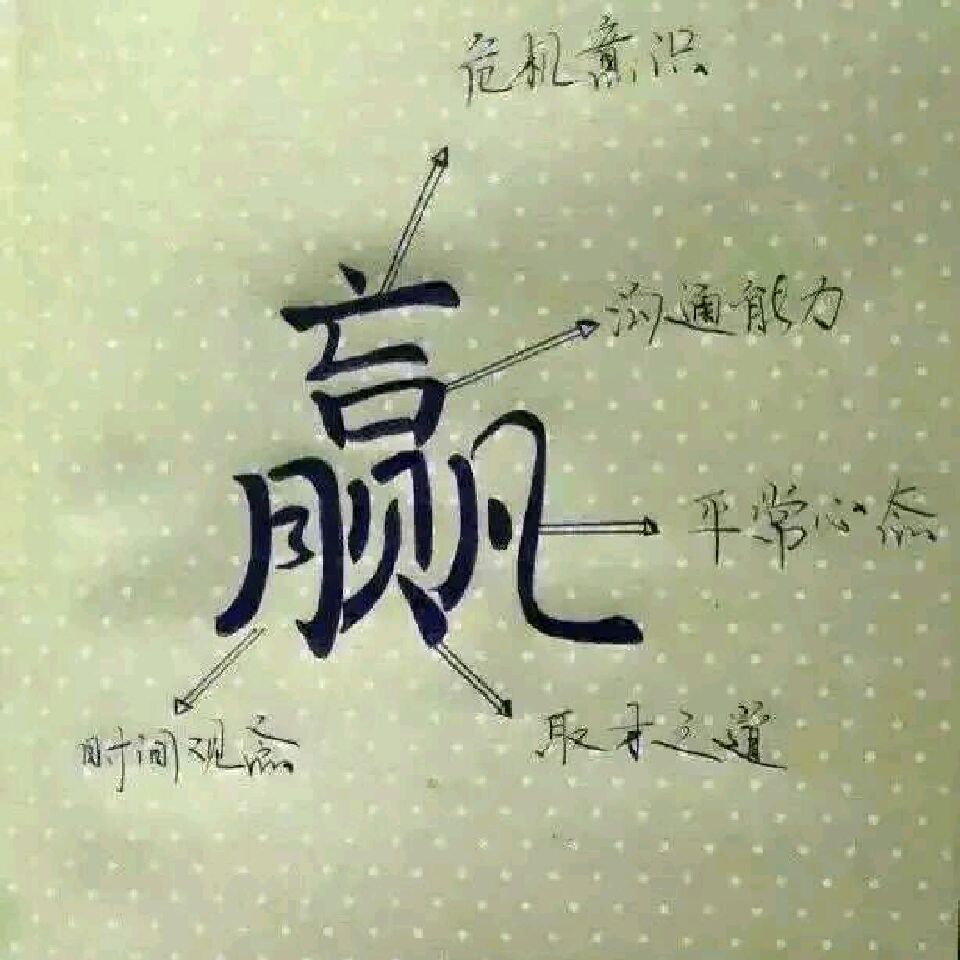 危机意识
沟通能力
赢
平常心态
时间观念
取才之道